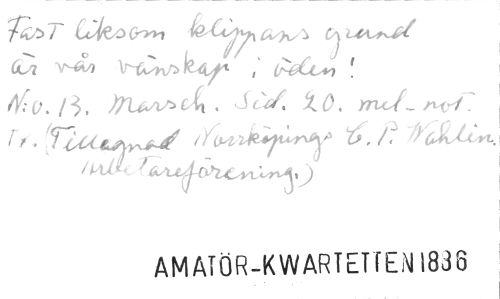 Fast liksom klippans grund
är vår vänskap i öden!
N:o. 13. Marsch. Sid. 20. mel-not.
Tx. (Tillegnad Norrköpings C. P. Wahlin.
Arbetareförening.)
AMATÖR-KWARTETTEN 1886